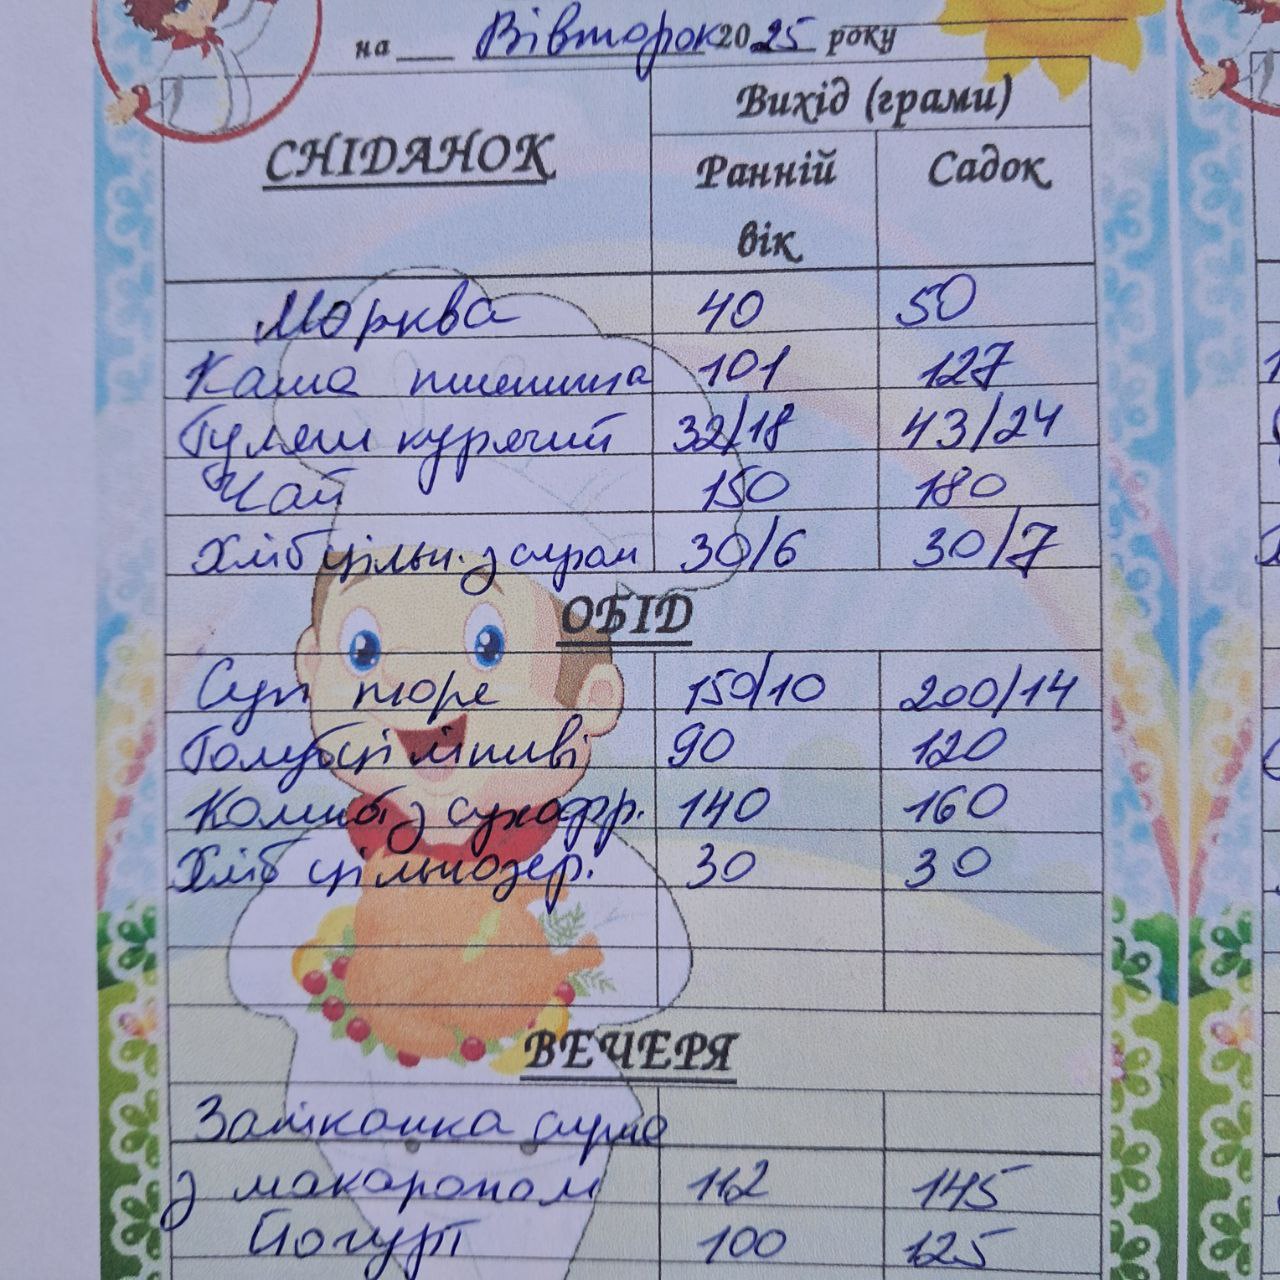 на ___ Вівторок 2025 року
СНІДАНОК Вихід (грами)
Ранній вік Садок
Морква 40 50
Каша пшенична 101 127
Гуляш курячий 32/18 43/24
Чай 150 180
Хліб цільн. з сиром 30/6 30/7
ОБІД
Суп пюре 150/10 200/14
Голубці ліниві 90 120
Компот з сухофр. 140 160
Хліб цільнозер. 30 30
ВЕЧЕРЯ
Запіканка сирна
з макароном 112 145
Йогурт 100 125